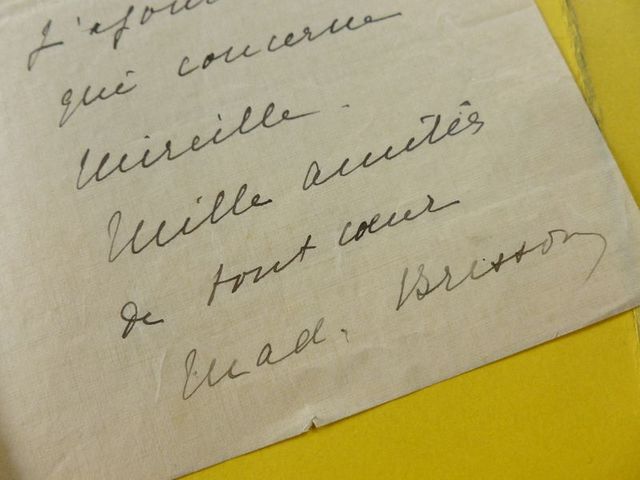 J'ajou
qui concerne
Mireille.
Mille amitiés
de tout cœur
Mad. Brisson